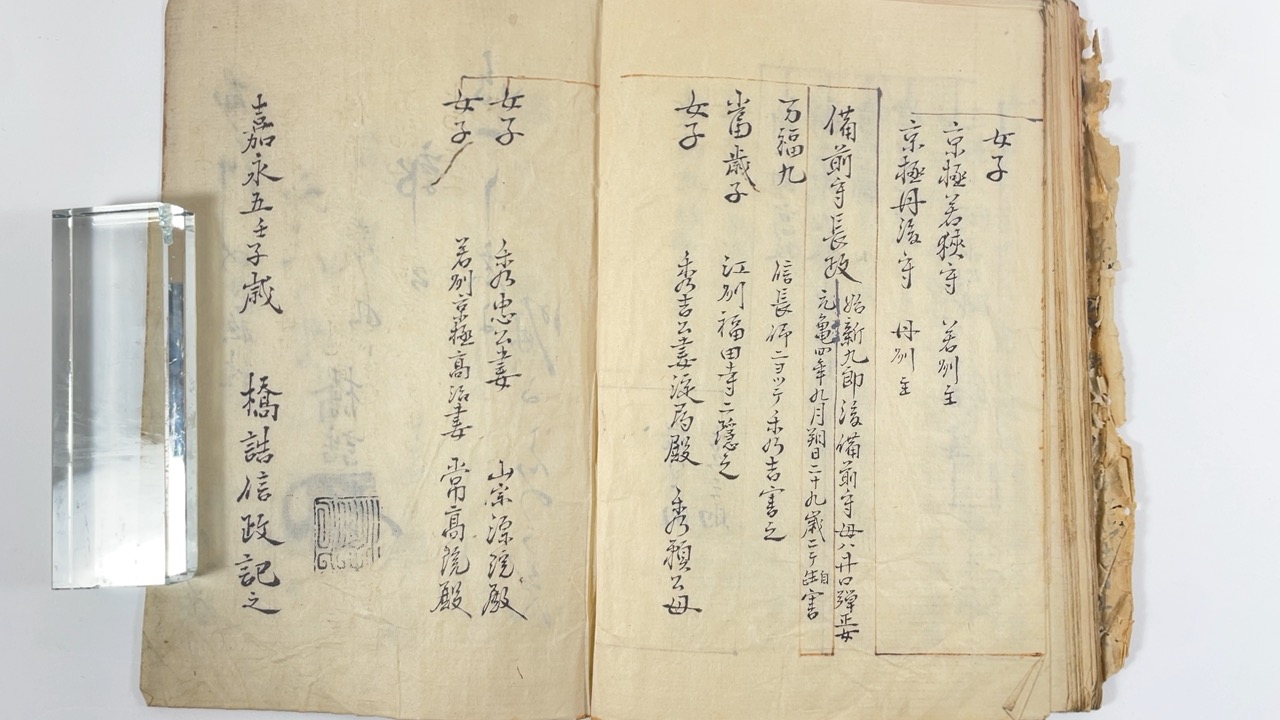 女子
京極若狭守　若州主
京極丹後守　丹州主
備前守長政
始新九郎後備前守母八井口弾正女
元亀四年九月朔日二十九歳ニテ生害
万福丸　信長命ニヨツテ秀吉害之
當歳子　江州福田寺ニ隠之
女子　秀吉公妻淀局殿　秀頼公母
女子　秀忠公妻　崇源院殿
女子　若州京極高次妻　常高院殿
嘉永五壬子歳　橋詰信政記之